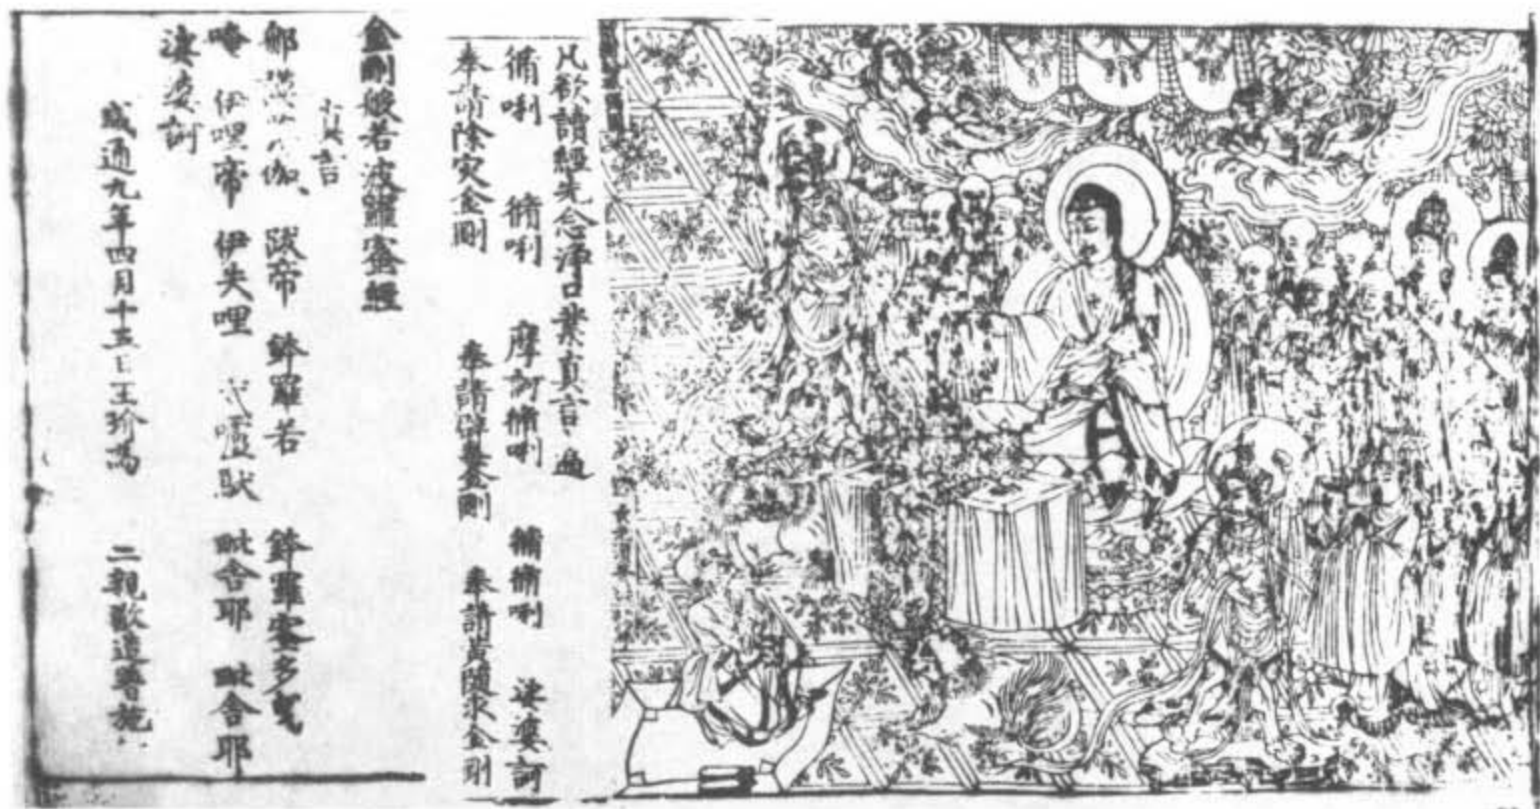 凡欲讀經先念淨口業真言一遍
脩唎 脩唎 摩訶脩唎 脩脩唎 娑婆訶
奉請除灾金剛 奉請辟毒金剛 奉請黃隨求金剛
金剛般若波羅蜜經
真言
跋帝 鉢羅若 鉢羅蜜多曳
唵 伊哩帝 伊失哩 戍嚧馱 毗舍耶 毗舍耶
娑婆訶
咸通九年四月十五日王玠為 二親敬造普施